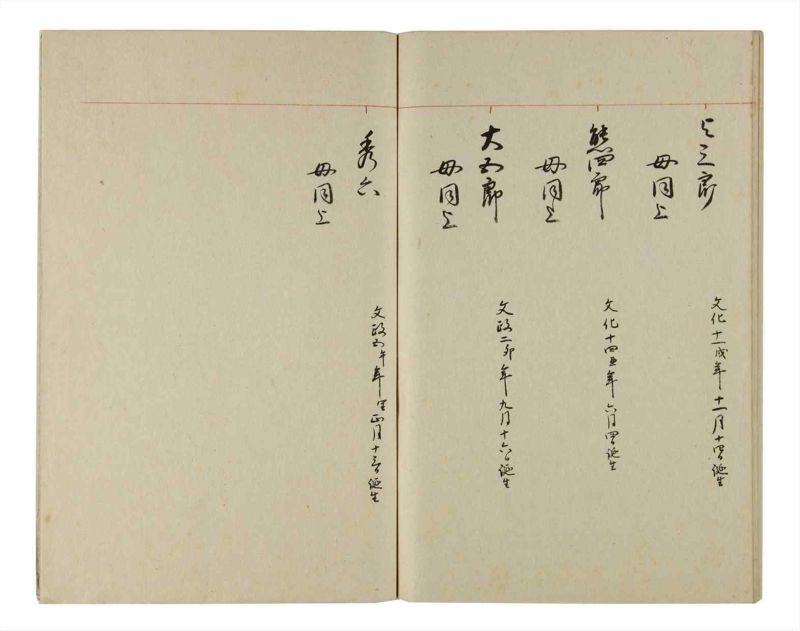 与三郎 文化十一戌年十一月十四日誕生
母同上
熊四郎 文化十四丑年六月四日誕生
母同上
大五郎 文政二卯年九月十六日誕生
母同上
秀六 文政五午年閏正月十三日誕生
母同上